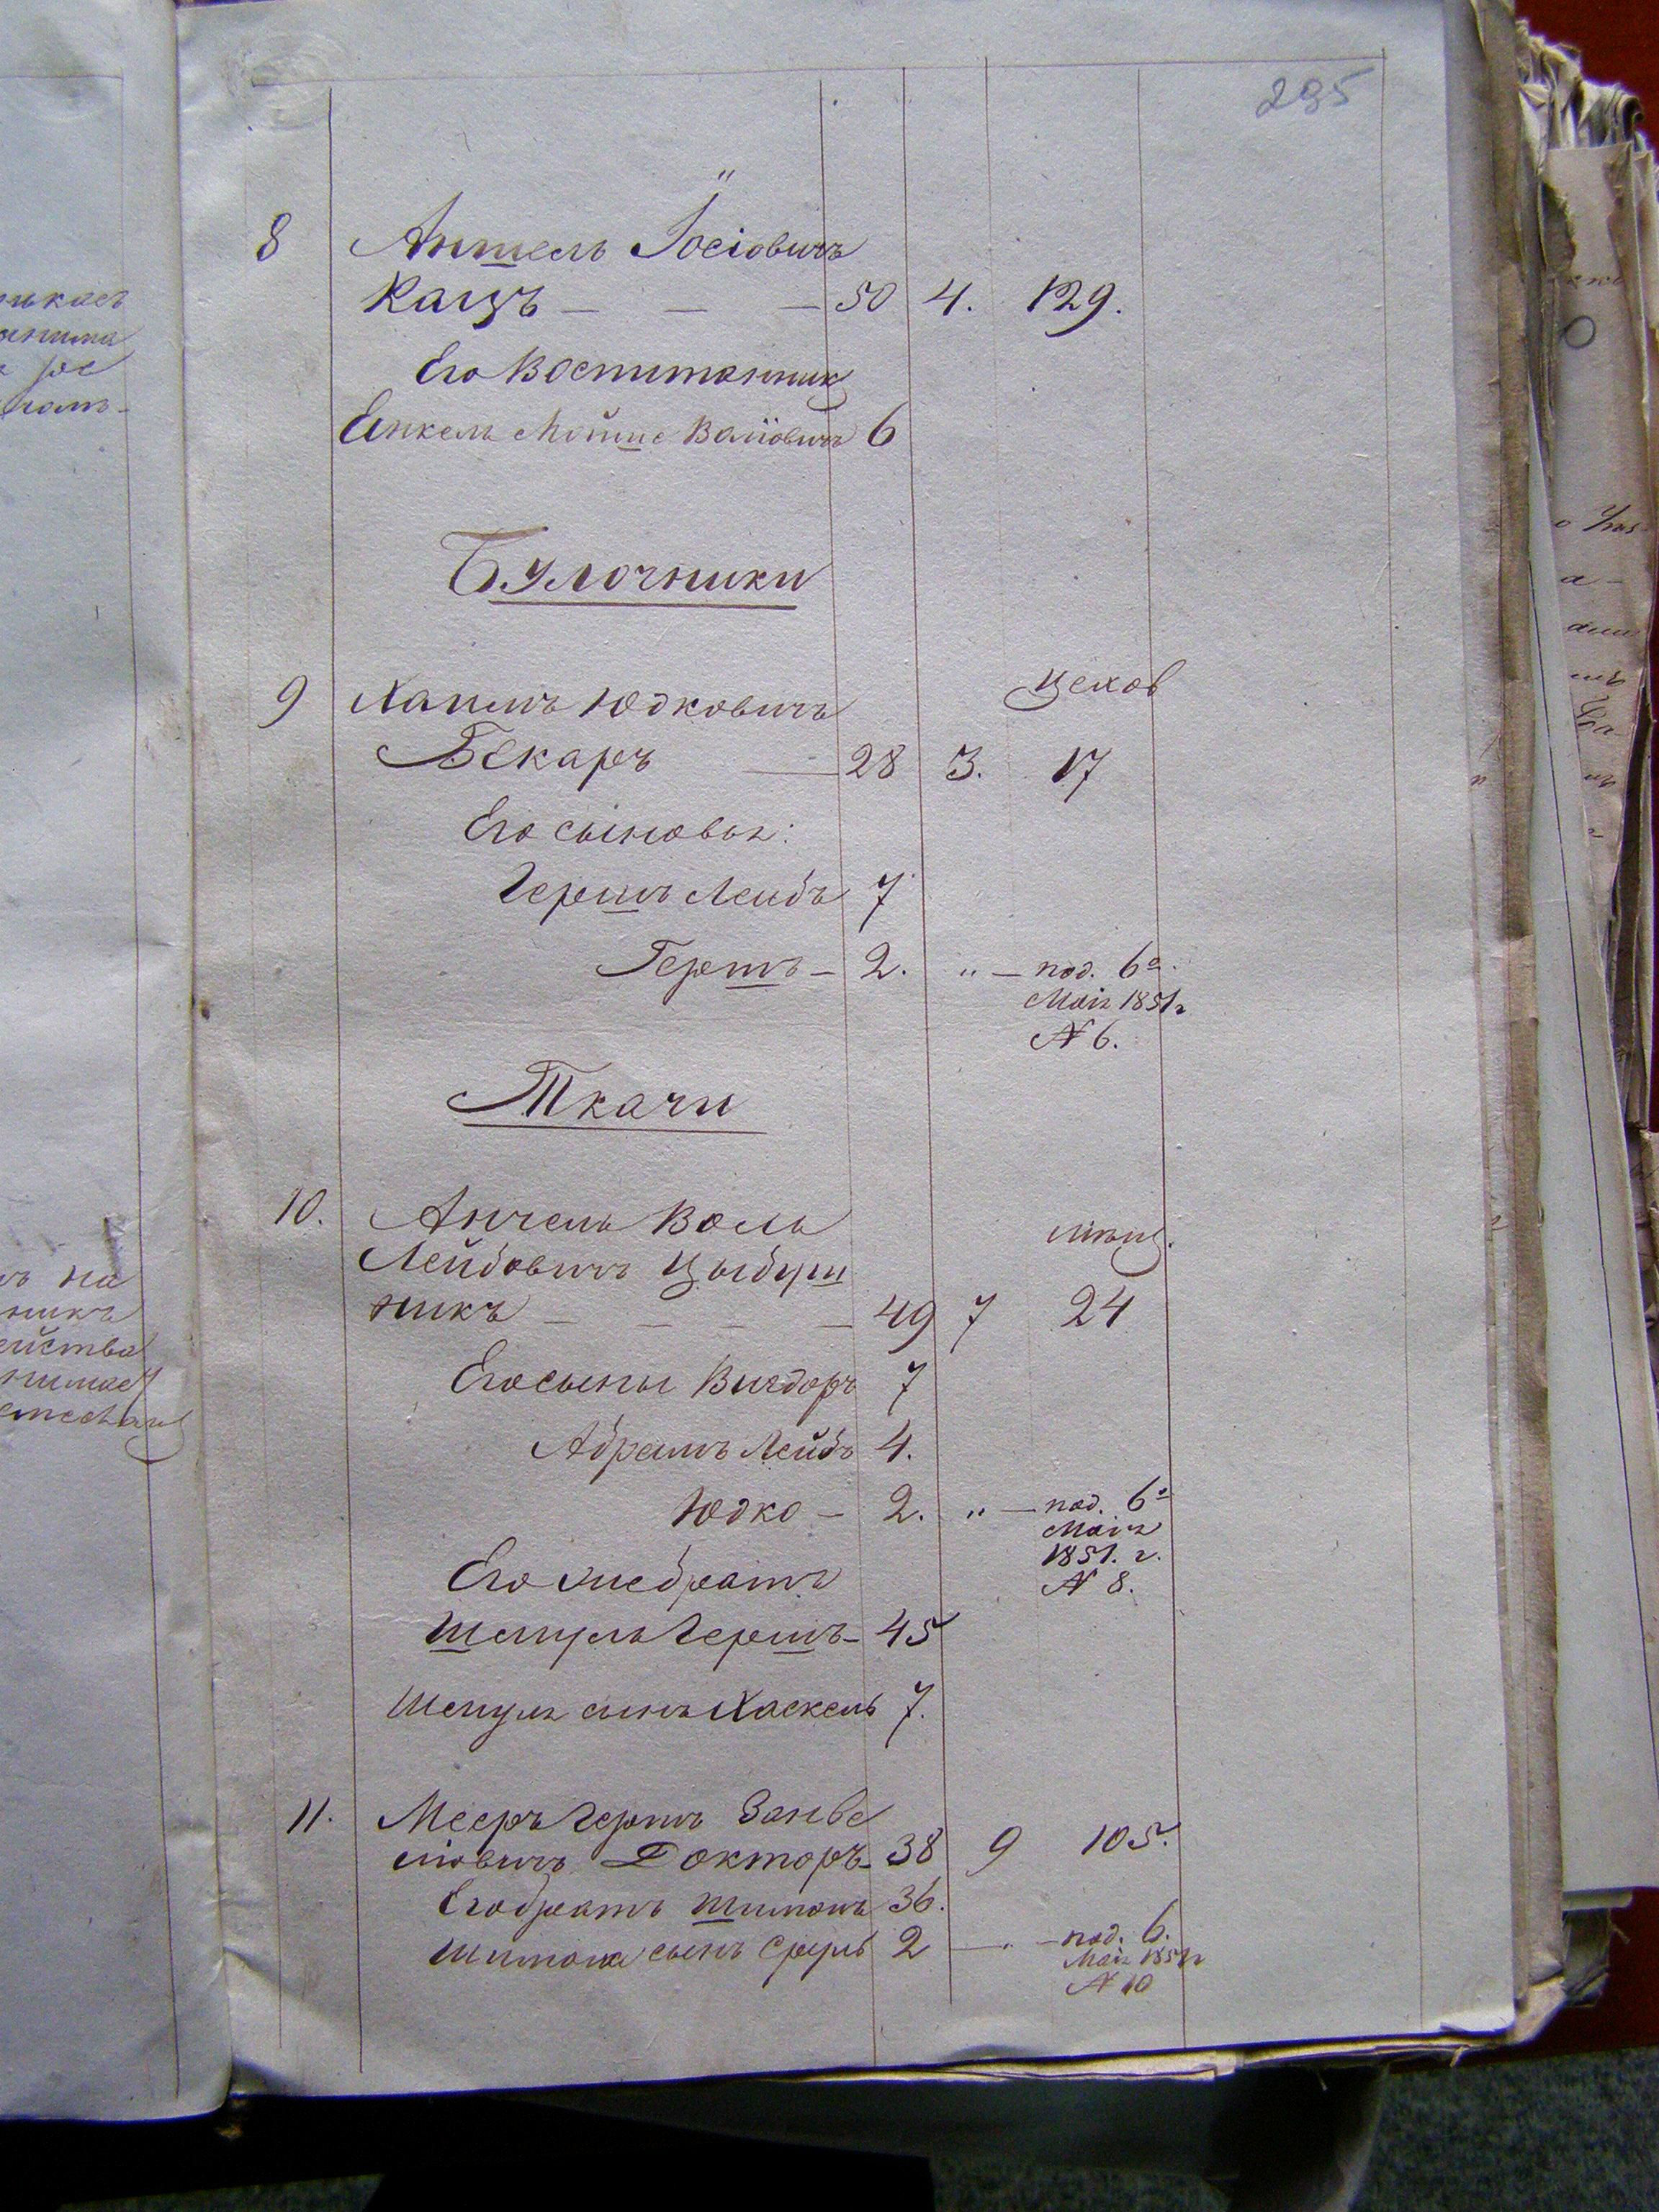 295
8 Аншель Іосіовичъ
Кацъ — — — 50 4. 129.
Его Воспитанник
Енкель Мошше Волiовичъ 6
Булочники
цехов
9 Хаимъ Юдковичъ
Бекаръ — 28 3. 17
Его сыновья:
Гершъ Лейбъ 7
Гершъ — 2. " — под. 6го
Маія 1851г
№ 6.
Ткачи
10. Анчель Воль
мѣщ.
Лейбовичъ Цыбуш
никъ — — — — 49 7 24
Его сыны Вигдоръ 7
Абрамъ Лейбъ 4.
Юдко — 2. " — под. 6го
Маія
1851. г.
№ 8.
Его же братъ
Шмуль Гершъ — 45
Шмуля сынъ Хаскель 7.
11. Мееръ Гершъ Занве
ліовичъ Докторъ — 38 9 105.
Его братъ Шимонъ 36.
Шимона сынъ Сруль 2 — " — под. 6.
Маія 1851г
№ 10